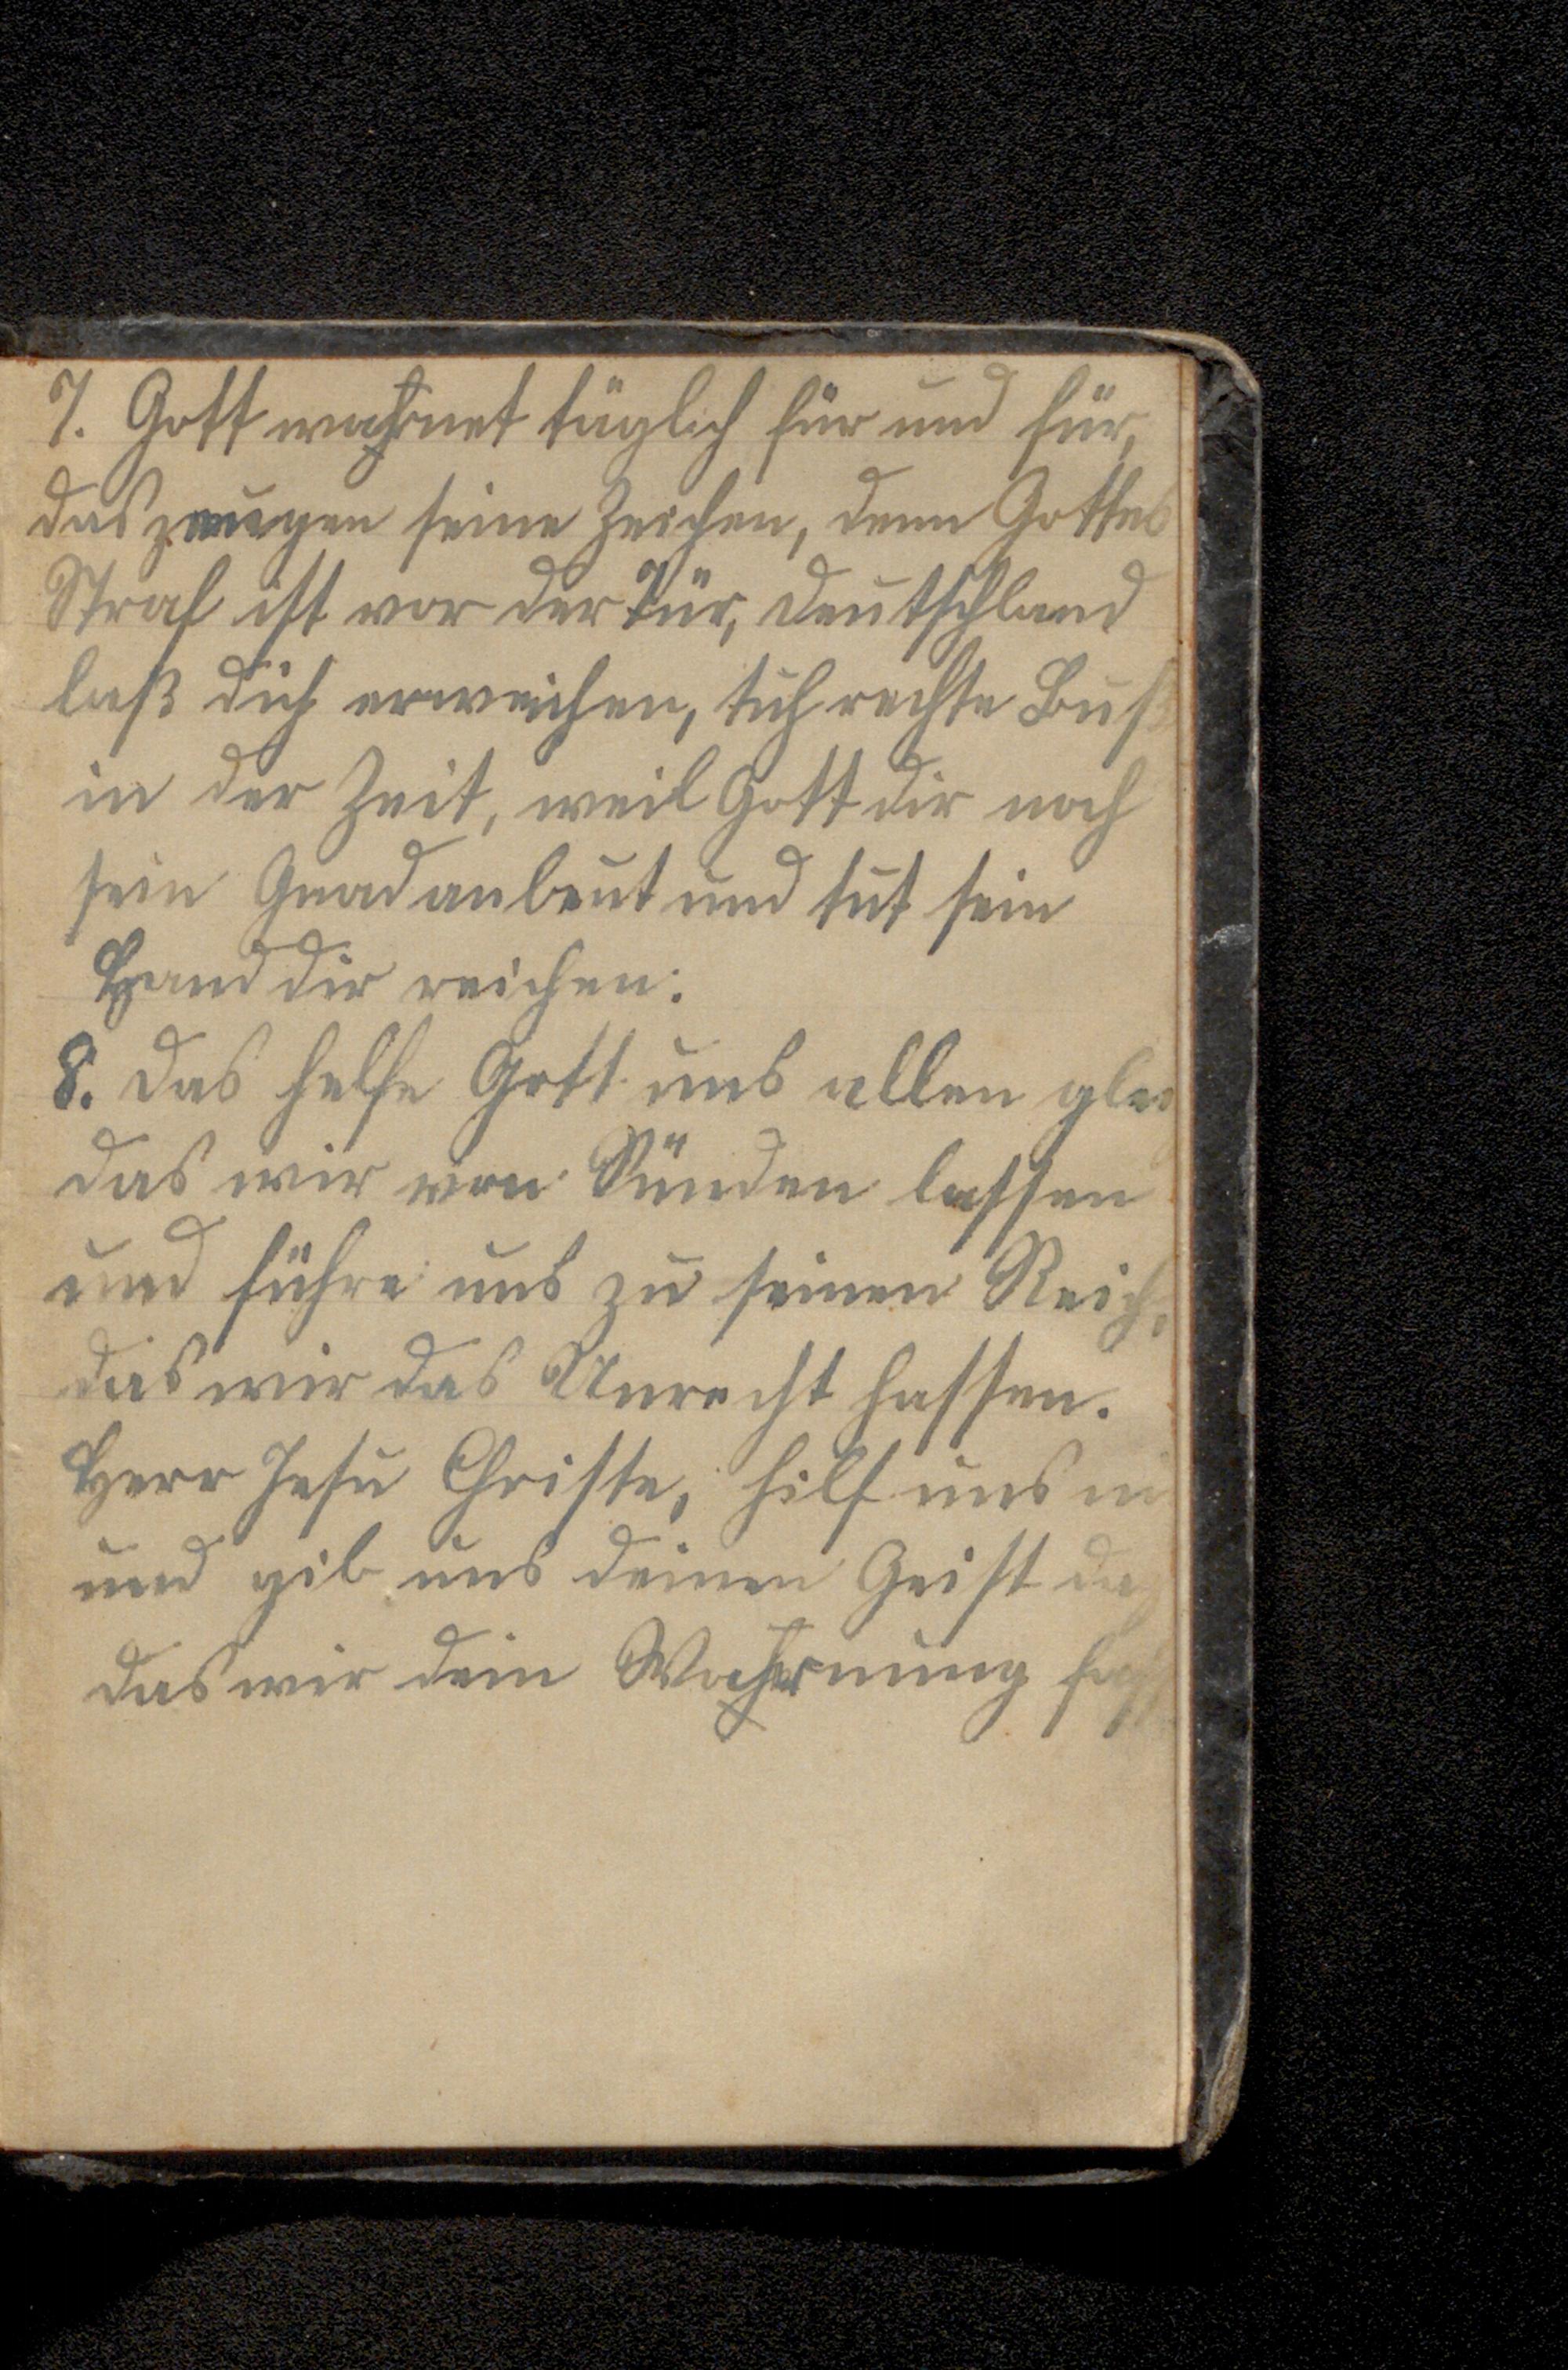 7. Gott wahrnet täglich für und für,
das zeugen seine Zeichen, denn Gottes
Straf ist vor der Tür, Deutschland
laß dich erweichen, tuh rechte Buß
in der Zeit, weil Gott dir noch
sein Gnad anbeut und tut sein
Hand dir reichen.
8. Das helfe Gott uns allen glei
das wir von Sünden lassen
und führe uns zu seinen Reich,
das wir das Unrecht hassen.
Herr Jesu Christe, hilf uns
und gib uns deinen Geist da
das wir dein Wahrnung faß